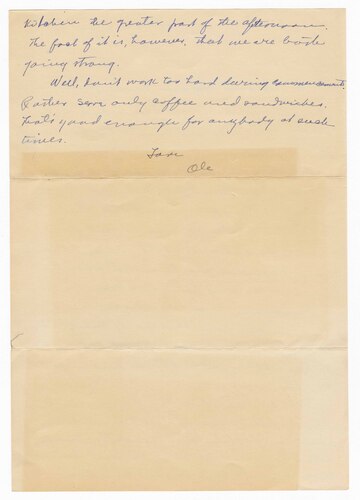 kitchen the greater part of the afternoon.
The fact of it is, however, that we are both
going strong.
Well, don't work too hard during commencement.
Rather serve only coffee and sandwiches.
That's good enough for anybody at such
times.
Love
Ole